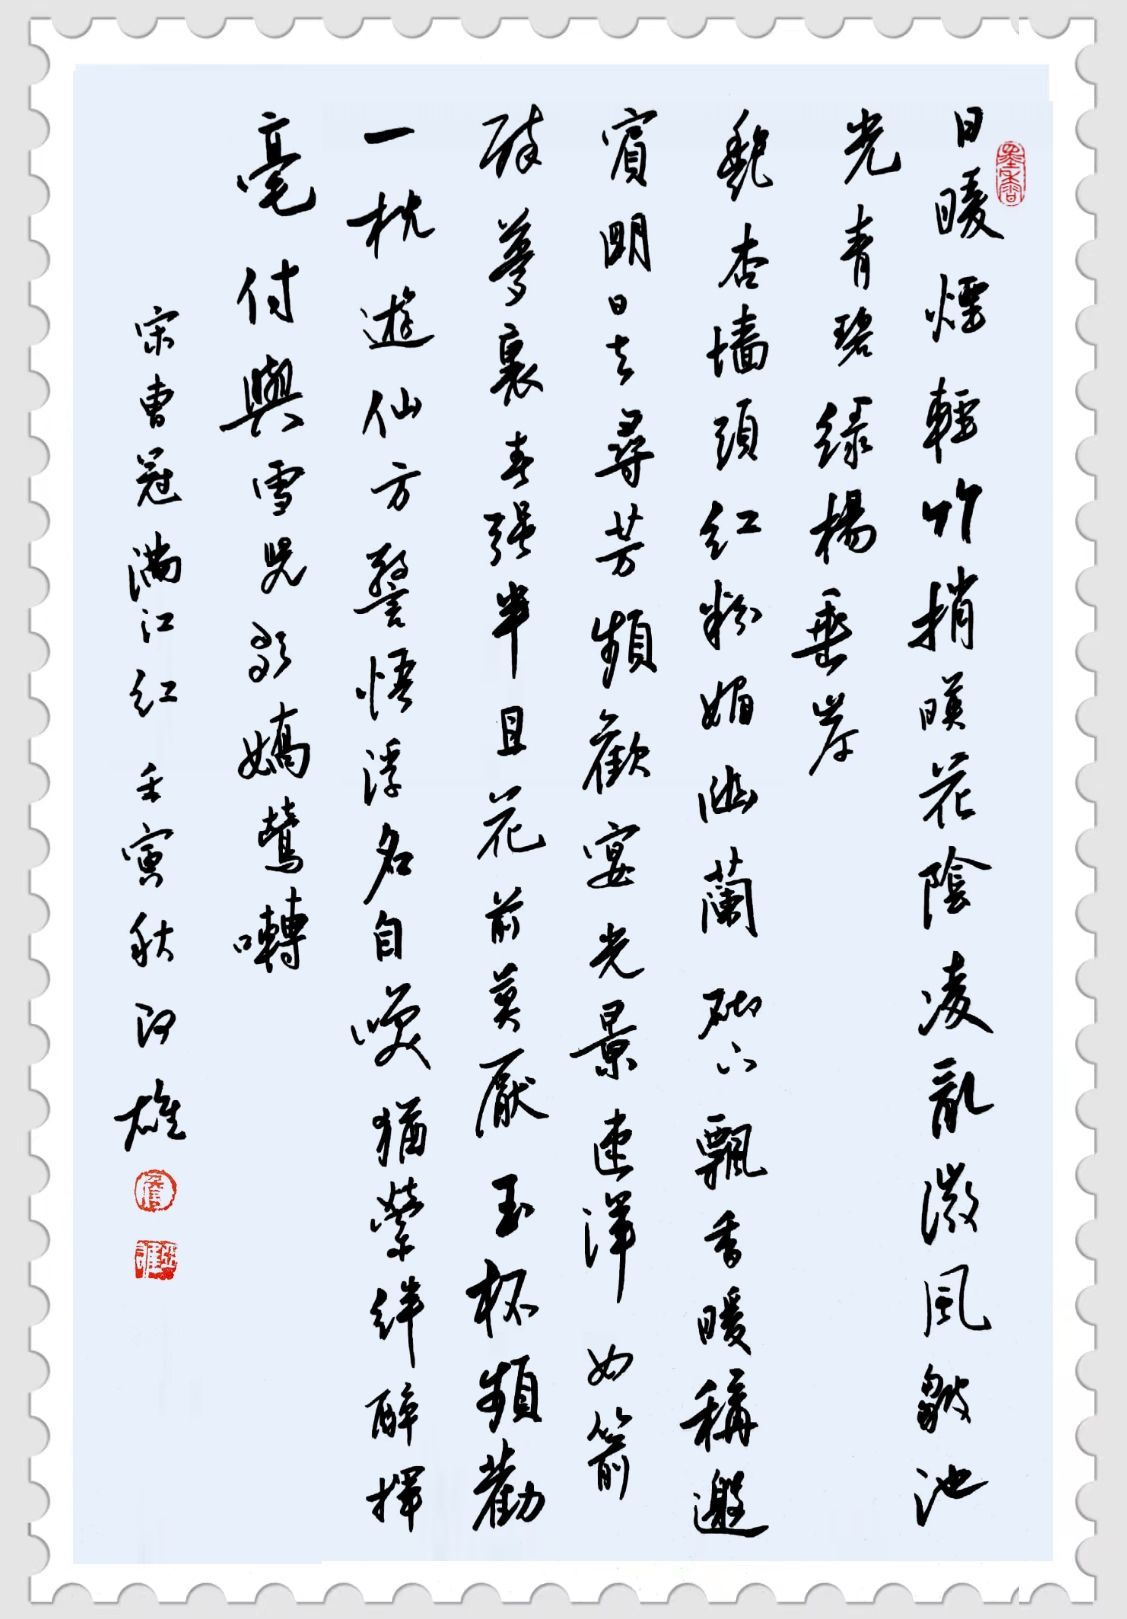 墨香
日暖煙輕竹梢暎花陰凌亂微風皺池
光青碧綠楊垂岸
魏杏墙頭紅粉媚幽蘭砌下飄香暖稱邀
賓明日去尋芳頻歡宴光景速渾如箭
醉夢裏春強半且花前莫厭玉杯頻勸
一枕遊仙方警悟浮名自嘆猶縈絆醉揮
毫付與雪兒歌嬌鶯囀
宋曹冠滿江紅壬寅秋亞雄